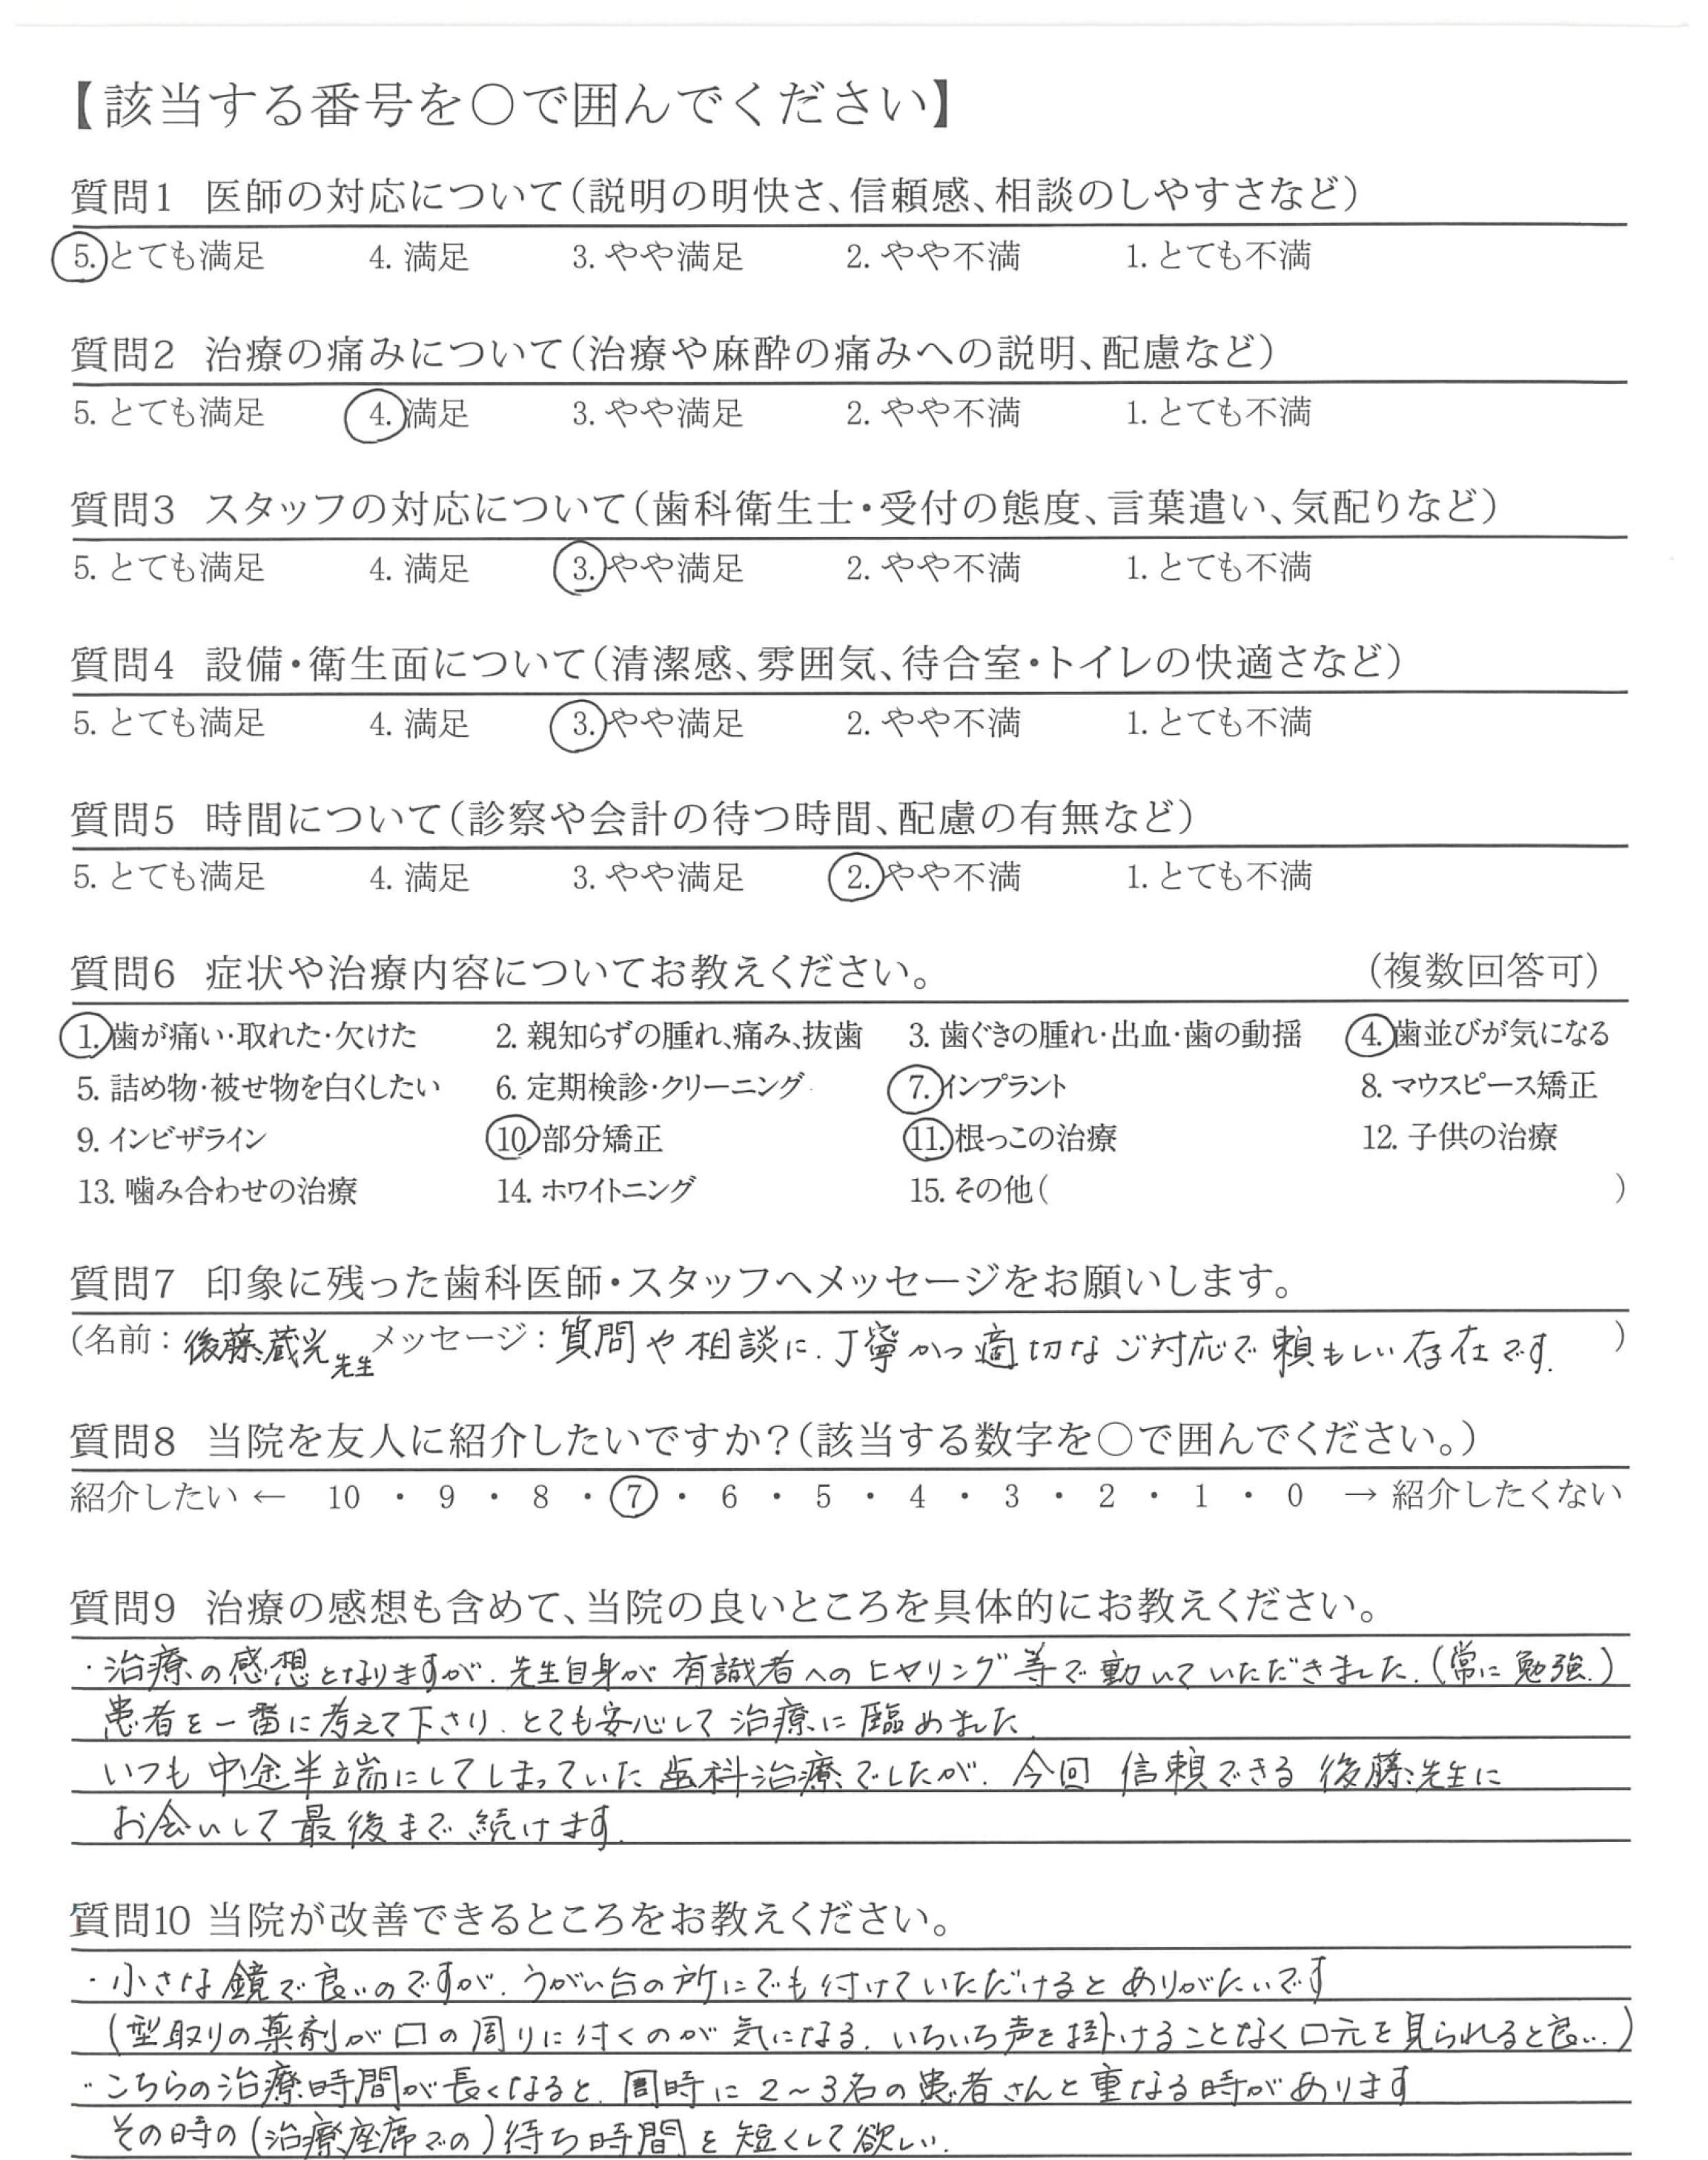 【該当する番号を○で囲んでください】
質問1 医師の対応について（説明の明快さ、信頼感、相談のしやすさなど）
5. とても満足 4. 満足 3. やや満足 2. やや不満 1. とても不満
質問2 治療の痛みについて（治療や麻酔の痛みへの説明、配慮など）
5. とても満足 4. 満足 3. やや満足 2. やや不満 1. とても不満
質問3 スタッフの対応について（歯科衛生士・受付の態度、言葉遣い、気配りなど）
5. とても満足 4. 満足 3. やや満足 2. やや不満 1. とても不満
質問4 設備・衛生面について（清潔感、雰囲気、待合室・トイレの快適さなど）
5. とても満足 4. 満足 3. やや満足 2. やや不満 1. とても不満
質問5 時間について（診察や会計の待つ時間、配慮の有無など）
5. とても満足 4. 満足 3. やや満足 2. やや不満 1. とても不満
質問6 症状や治療内容についてお教えください。 （複数回答可）
1. 歯が痛い・取れた・欠けた 2. 親知らずの腫れ、痛み、抜歯 3. 歯ぐきの腫れ・出血・歯の動揺 4. 歯並びが気になる
5. 詰め物・被せ物を白くしたい 6. 定期検診・クリーニング 7. インプラント 8. マウスピース矯正
9. インビザライン 10. 部分矯正 11. 根っこの治療 12. 子供の治療
13. 噛み合わせの治療 14. ホワイトニング 15. その他（ ）
質問7 印象に残った歯科医師・スタッフへメッセージをお願いします。
（名前：後藤蔵光先生 メッセージ：質問や相談に、丁寧かつ適切なご対応で頼もしい存在です。 ）
質問8 当院を友人に紹介したいですか？（該当する数字を○で囲んでください。）
紹介したい ← 10 ・ 9 ・ 8 ・ 7 ・ 6 ・ 5 ・ 4 ・ 3 ・ 2 ・ 1 ・ 0 → 紹介したくない
質問9 治療の感想も含めて、当院の良いところを具体的にお教えください。
・治療の感想となりますが、先生自身が有識者へのヒヤリング等で動いていただきました。（常に勉強。）
患者を一番に考えて下さり、とても安心して治療に臨めました。
いつも中途半端にしてしまっていた歯科治療でしたが、今回 信頼できる後藤先生に
お会いして最後まで続けます。
質問10 当院が改善できるところをお教えください。
・小さな鏡で良いのですが、うがい台の所にでも付けていただけるとありがたいです
（型取りの薬剤が口の周りに付くのが気になる。いちいち声を掛けることなく口元を見られると良い‥）
・こちらの治療時間が長くなると、同時に2〜3名の患者さんと重なる時があります
その時の（治療座席での）待ち時間を短くして欲しい。